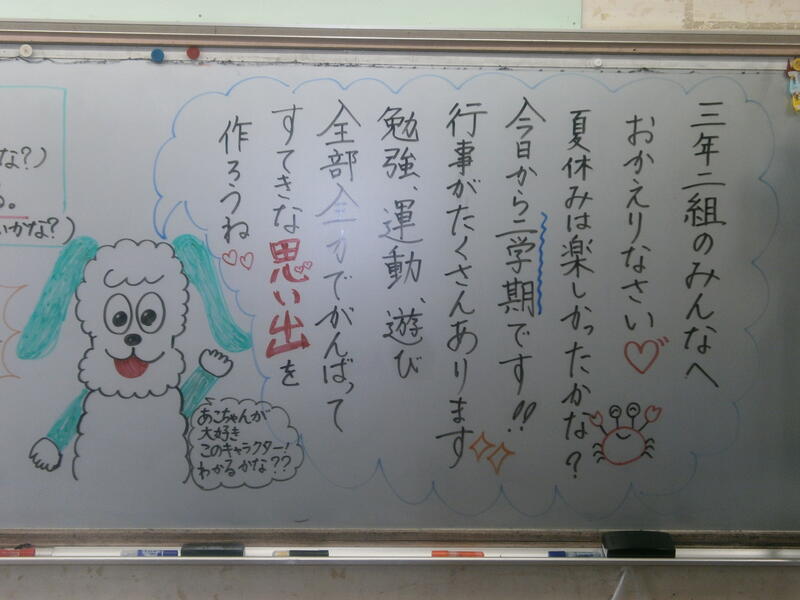 三年二組のみんなへ
おかえりなさい
夏休みは楽しかったかな？
今日から二学期です!!
行事がたくさんあります
勉強、運動、遊び
全部全力でがんばって
すてきな思い出を
作ろうね
あこちゃんが
大好き
このキャラクター！
わかるかな？？
な？）
る。
いかな？）